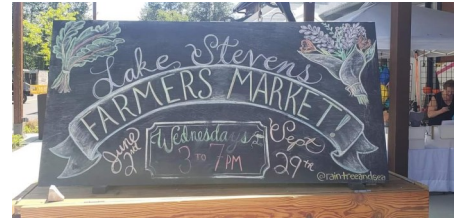 Lake Stevens
FARMERS MARKET!
June 2nd
Wednesdays
3 TO 7 PM
Sept 29th
@raintreeandsea